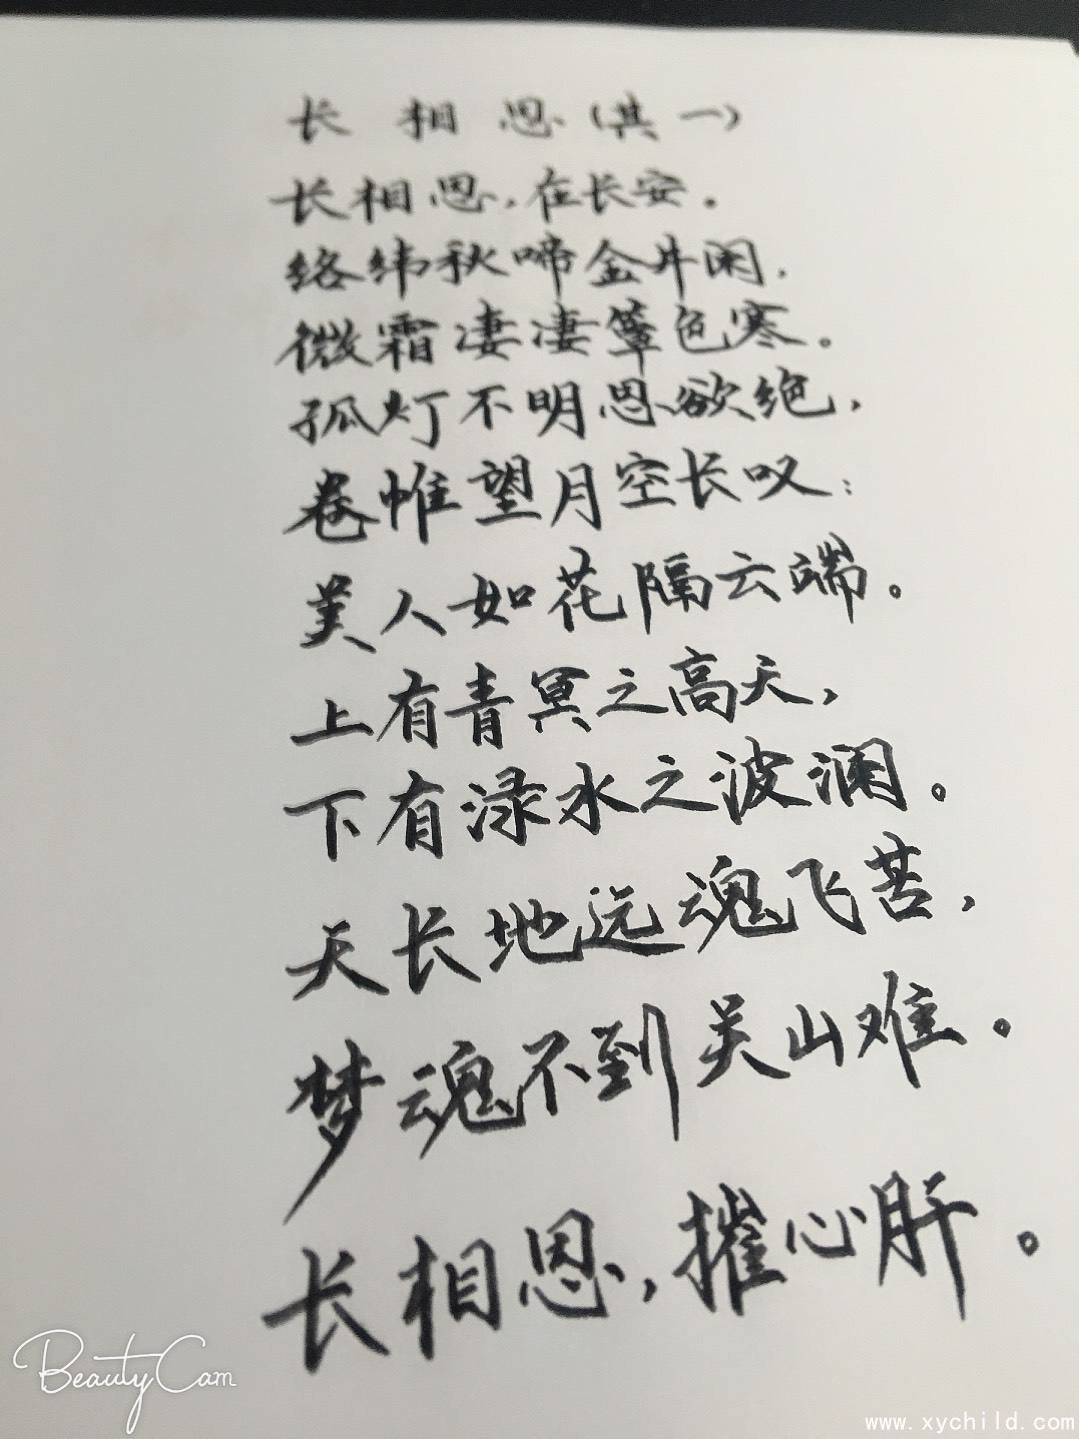 长相思(其一)
长相思,在长安。
络纬秋啼金井闲,
微霜凄凄簟色寒。
孤灯不明思欲绝,
卷帷望月空长叹:
美人如花隔云端。
上有青冥之高天,
下有渌水之波澜。
天长地远魂飞苦,
梦魂不到关山难。
长相思,摧心肝。
BeautyCam
www.xychild.com